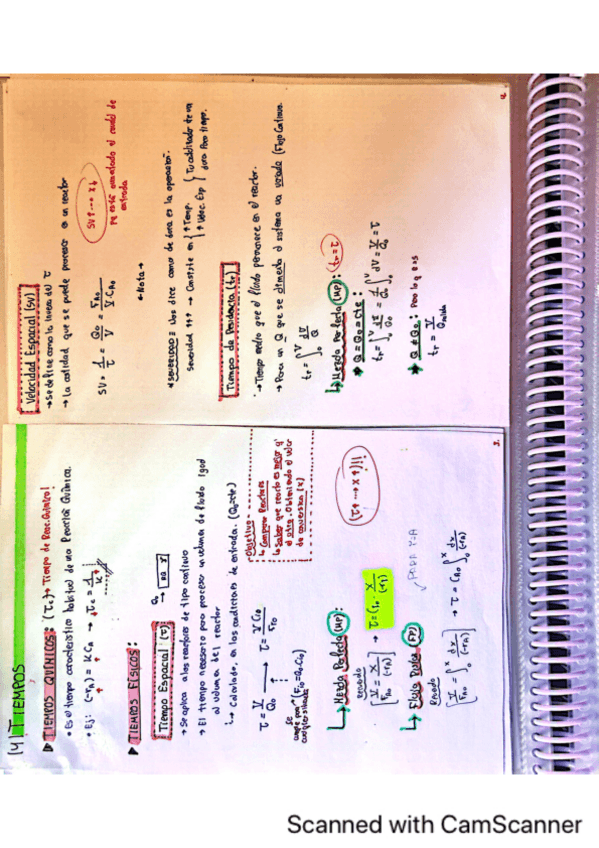 (4) TIEMPOS
▶ TIEMPOS QUÍMICOS: (τc) → Tiempo de Reac. Química!
• Es el tiempo característico habitual de una Reacción Química.
• Ej: (-rA) = K CA → τc = 1/K
▶ TIEMPOS FÍSICOS:
Tiempo Espacial (τ)
→ Se aplica a los reactores de tipo continuo
→ El tiempo necesario para procesar un volumen de fluido igual
al volumen del reactor
↳ Calculado, en las condiciones de entrada. (Q0=cte)
τ = V/Q0 → τ = V·CA0/FA0
(FA0=Q0·CA0)
Objetivo:
↳ Comparar Reactores
↳ Saber que reactor es mejor q'
el otro. Obteniendo el valor
de conversión (x)
↳ Mezcla Perfecta (MP):
[V/FA0 = X/(-rA)] → τ = CA0 · X/(-rA)
¡¡(↓x ... ↓τ)
↳ Flujo Pistón (FP)
[V/FA0 = ∫0^x dx/(-rA)] → τ = CA0 ∫0^x dx/(-rA)
Velocidad Espacial (SV)
→ Se define como la inversa del τ
→ La cantidad que se puede procesar en un reactor
SV = 1/τ = Q0/V = FA0/(V·CA0)
SV↑ ... x↓
entrada
• Nota •
• Severidad = Nos dice como de dura es la operación.
Severidad ↑↑↑ → Consiste en { ↑Temp.
↓Veloc. Esp
Tiempo de Residencia (tr)
→ Tiempo medio que el fluido permanece en el reactor.
→ Para un Q que se alimenta el sistema un variado (Flujo Continuo)
tr = ∫0^V dV/Q
↳ Mezcla Perfecta (MP): (tr = τ)
★ Q = Q0 = cte:
tr = ∫0^V dV/Q0 = 1/Q0 ∫0^V dV = V/Q0 = τ
★ Q ≠ Q0: Para lo q es
tr = V/Qsalida
Scanned with CamScanner